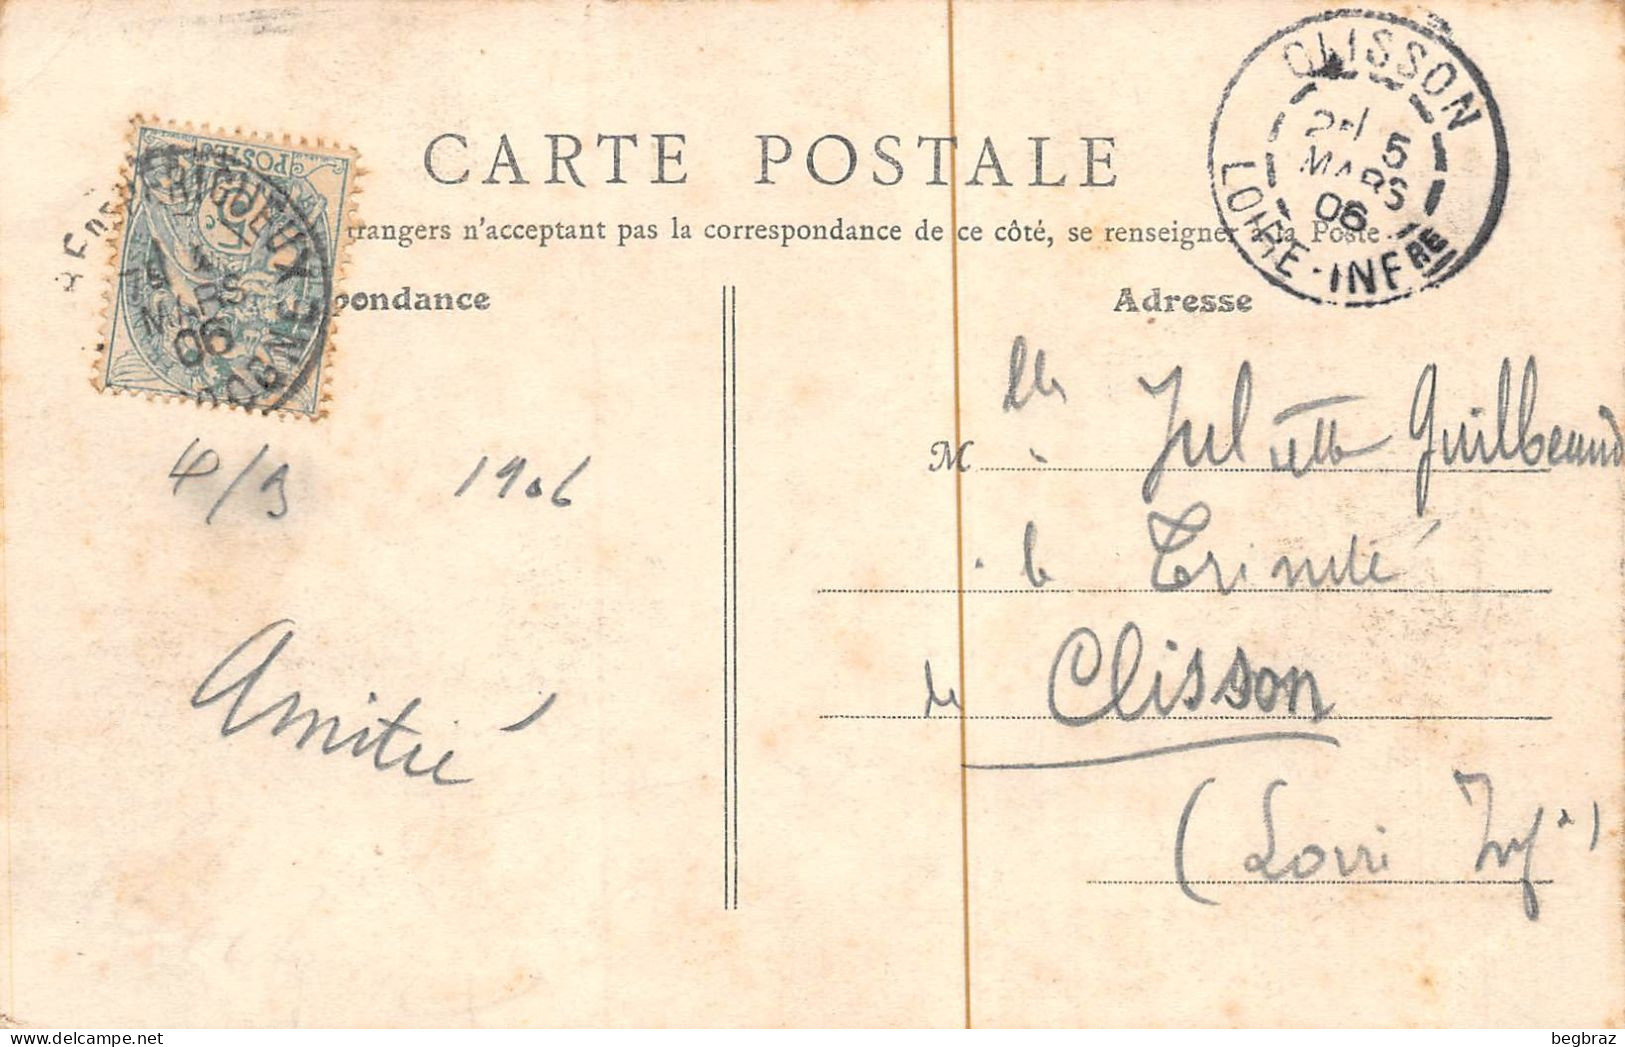 CLISSON
5
MARS
06
LOIRE-INFRE
POSTES
PERIGUEUX
MARS
06
DOGNE
CARTE POSTALE
trangers n'acceptant pas la correspondance de ce côté, se renseigner à la Poste
pondance
Adresse
M Lle Juliette Guilbeaud
4/3 1906
la Trinité
de Clisson
Amitié
(Loire Infre)
begbraz